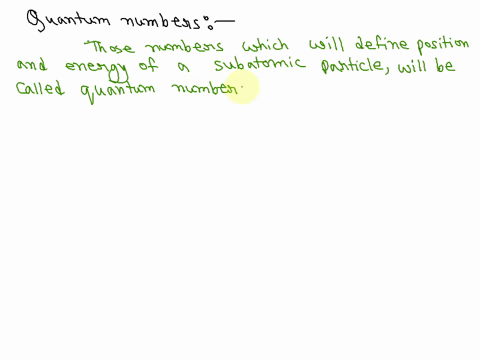 Quantum numbers:—
Those numbers which will define position
and energy of a subatomic particle, will be
called quantum number.